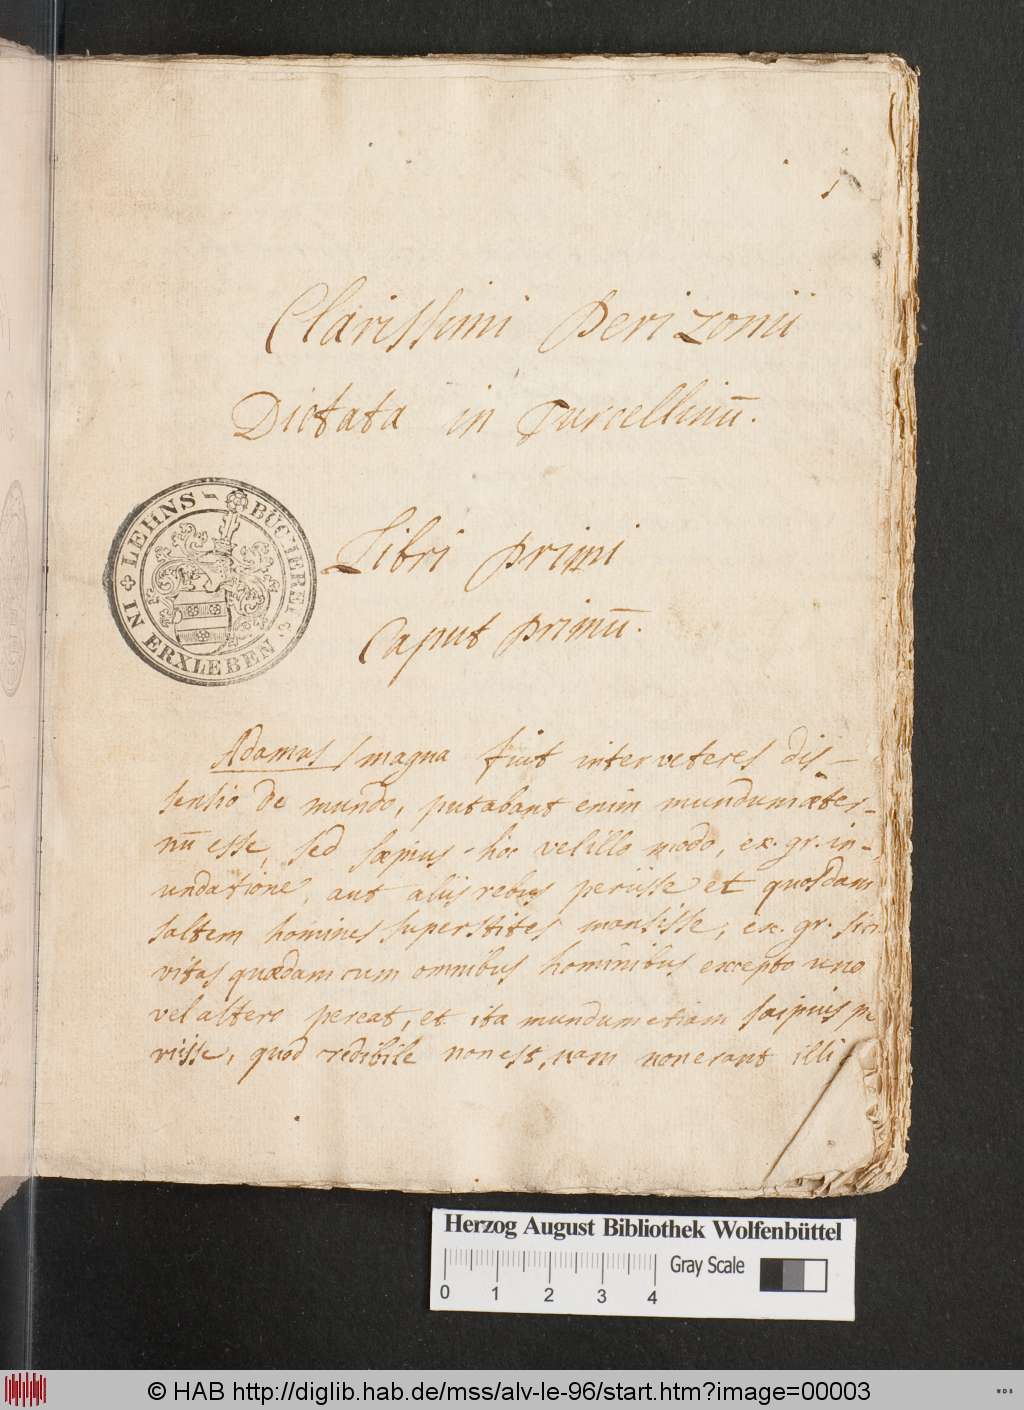 1
Clarissimi Perizonii
Dictata in Turcellinū.
Libri Primi
Caput Primū.
LEHNS-BÜCHEREI
IN ERXLEBEN
Adamus / magna fuit inter veteres dis-
sensio de mundo, putabant enim mundum æter-
nū esse, sed sæpius hoc vel illo modo, ex. gr. in-
undatione, aut aliis rebus periisse et quosdam
saltem homines superstites mansisse; ex. gr. si ci
vitas quædam cum omnibus hominibus excepto uno
vel altero pereat, et ita mundum etiam saepius pe
riisse, quod credibile non est, nam non erant illi
Herzog August Bibliothek Wolfenbüttel
Gray Scale
0 1 2 3 4
© HAB http://diglib.hab.de/mss/alv-le-96/start.htm?image=00003